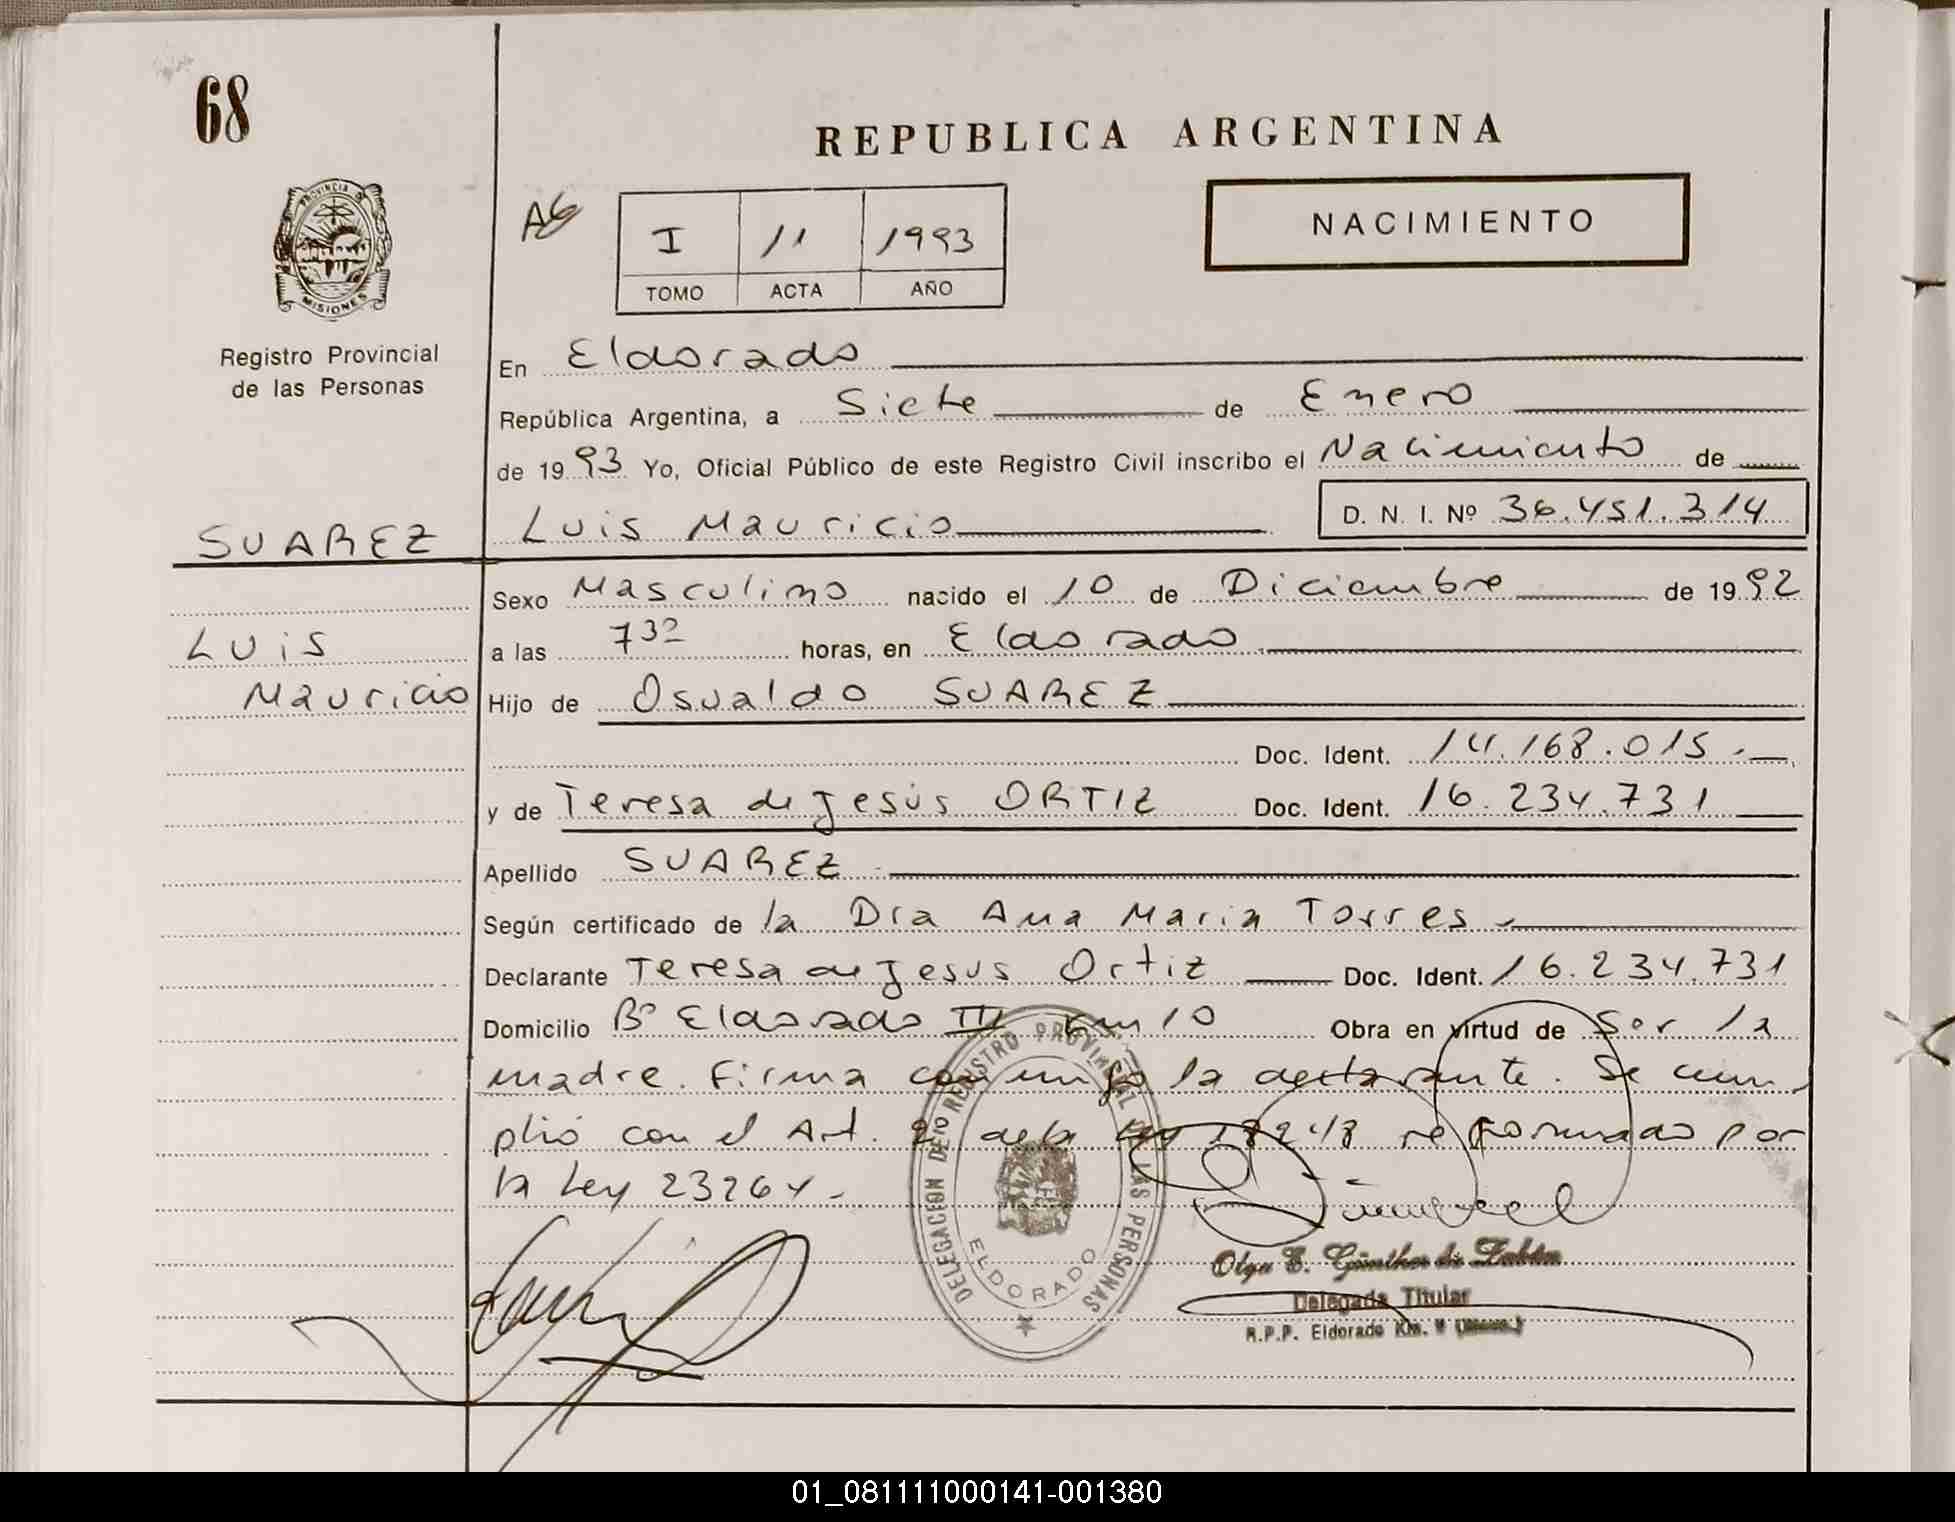 68
REPUBLICA ARGENTINA
PROVINCIA D
MISIONES
Registro Provincial
de las Personas
AG
I 11 1993
TOMO ACTA AÑO
NACIMIENTO
En Eldorado
República Argentina, a Siete de Enero
de 1993 Yo, Oficial Público de este Registro Civil inscribo el Nacimiento de
SUAREZ
Luis Mauricio D. N. I. Nº 36.451.314
Sexo Masculino nacido el 10 de Diciembre de 1992
Luis
a las 7³⁰ horas, en Eldorado
Mauricio
Hijo de Osvaldo SUAREZ
Doc. Ident. 14.168.015.-
y de Teresa de Jesús ORTIZ Doc. Ident. 16.234.731
Apellido SUAREZ
Según certificado de la Dra Ana Maria Torres
Declarante Teresa de Jesus Ortiz Doc. Ident. 16.234.731
Domicilio Bº Eldorado III Km 10 Obra en virtud de Ser la
madre. Firma conmigo la declarante. Se cum
plió con el Art. 2 de la Ley 18248 reformado por
la Ley 23264.-
DELEGACION DEL REGISTRO PROVINCIAL DE LAS PERSONAS
ELDORADO
Olga E. Günther de
Delegada Titular
R.P.P. Eldorado Km. 9
01_081111000141-001380